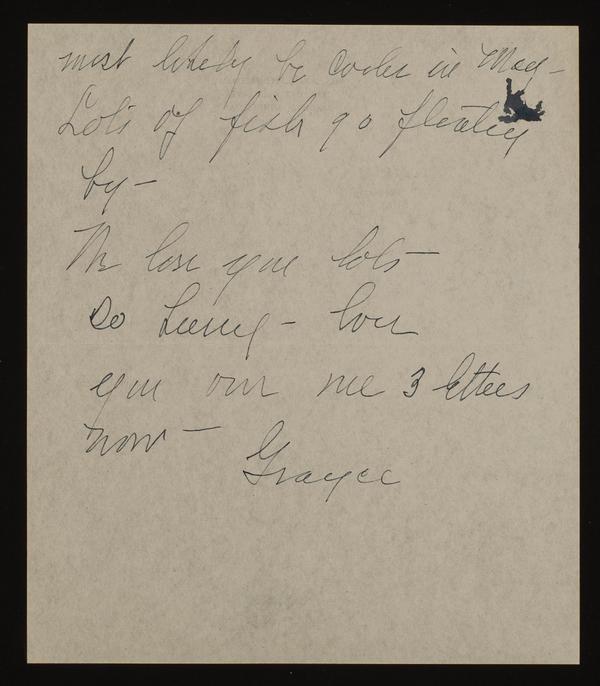 most likely be cooler in May -
Lots of fish go floating
by -
We love you lots -
So hurry - love
you owe me 3 letters
now -
Grayce